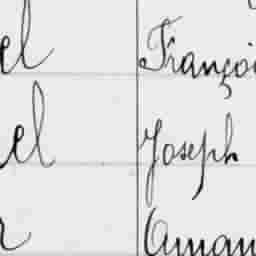 el Françoi
el Joseph
r Aman